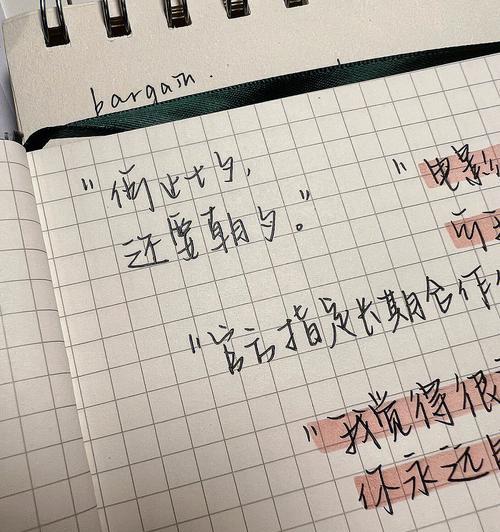 bargain.
"止七夕,
还要朝夕。"
"电影
"官方指定长期合作
"我觉得很
你永远